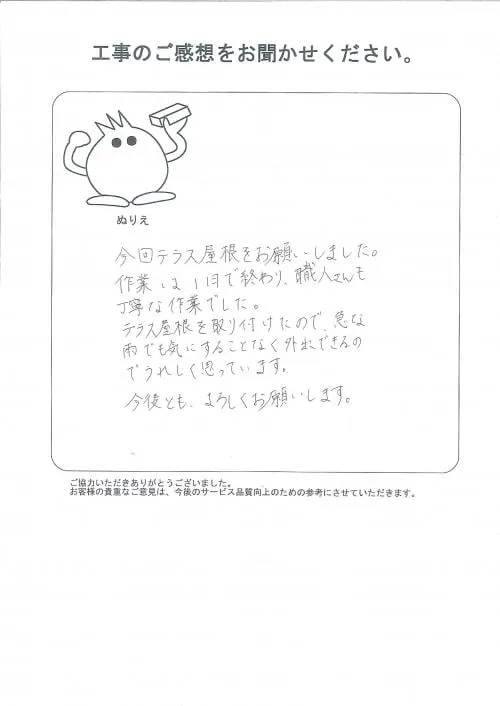 工事のご感想をお聞かせください。
ぬりえ
今回テラス屋根をお願いしました。
作業は1日で終わり、職人さんも
丁寧な作業でした。
テラス屋根を取り付けたので、急な
雨でも気にすることなく外出できるの
でうれしく思っています。
今後とも、よろしくお願いします。
ご協力いただきありがとうございました。
お客様の貴重なご意見は、今後のサービス品質向上のための参考にさせていただきます。